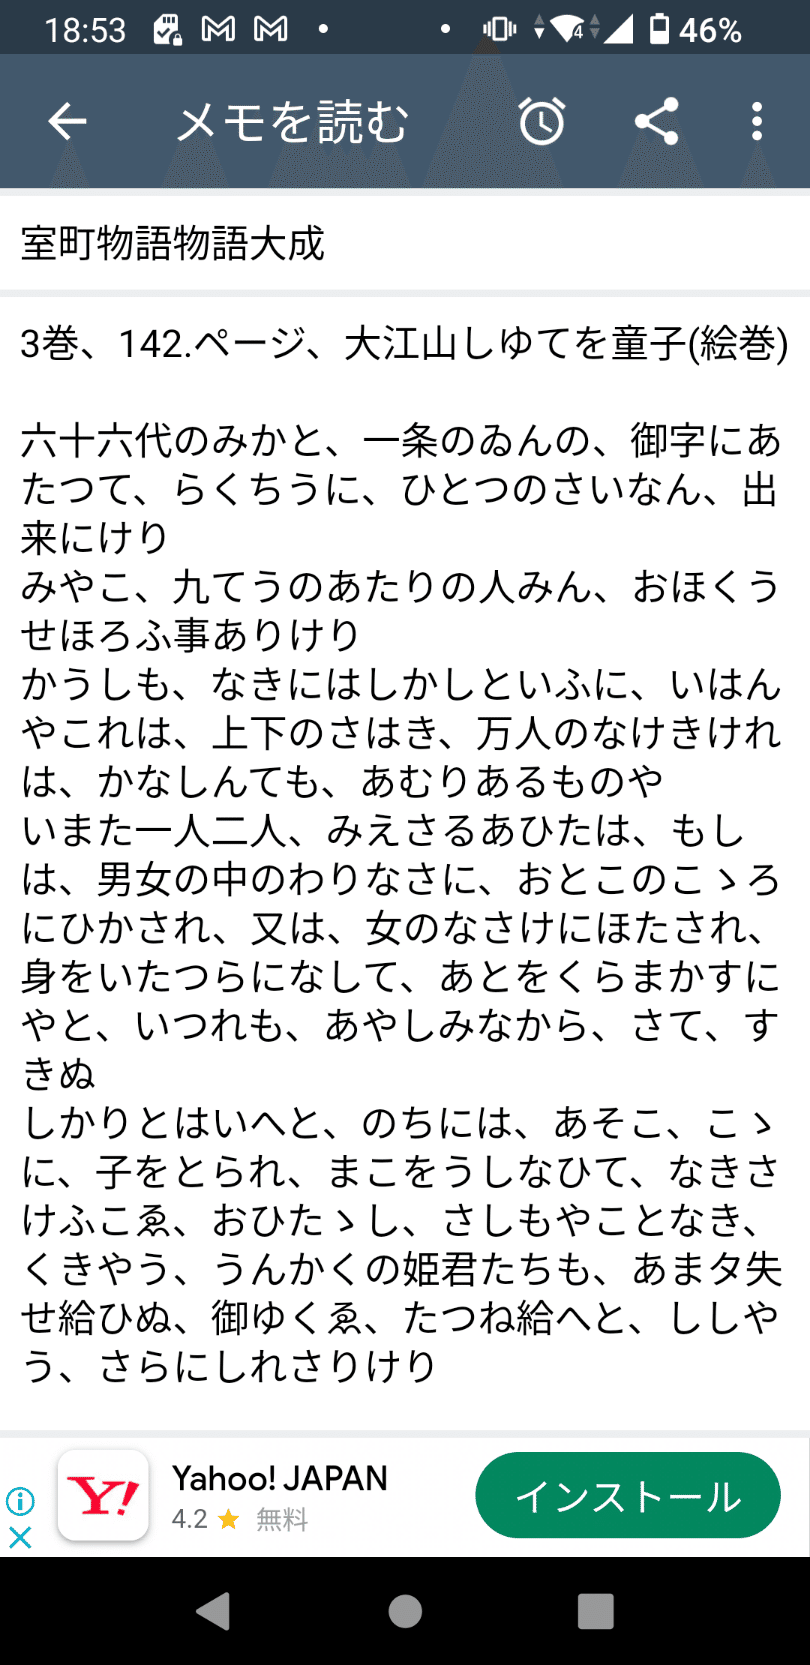 18:53
4
46%
メモを読む
室町物語物語大成
3巻、142.ページ、大江山しゆてを童子(絵巻)
六十六代のみかと、一条のゐんの、御字にあ
たつて、らくちうに、ひとつのさいなん、出
来にけり
みやこ、九てうのあたりの人みん、おほくう
せほろふ事ありけり
かうしも、なきにはしかしといふに、いはん
やこれは、上下のさはき、万人のなけきけれ
は、かなしんても、あむりあるものや
いまた一人二人、みえさるあひたは、もし
は、男女の中のわりなさに、おとこのこゝろ
にひかされ、又は、女のなさけにほたされ、
身をいたつらになして、あとをくらまかすに
やと、いつれも、あやしみなから、さて、す
きぬ
しかりとはいへと、のちには、あそこ、こゝ
に、子をとられ、まこをうしなひて、なきさ
けふこゑ、おひたゝし、さしもやことなき、
くきやう、うんかくの姫君たちも、あまタ失
せ給ひぬ、御ゆくゑ、たつね給へと、ししや
う、さらにしれさりけり
Y!
Yahoo! JAPAN
4.2 ★ 無料
インストール